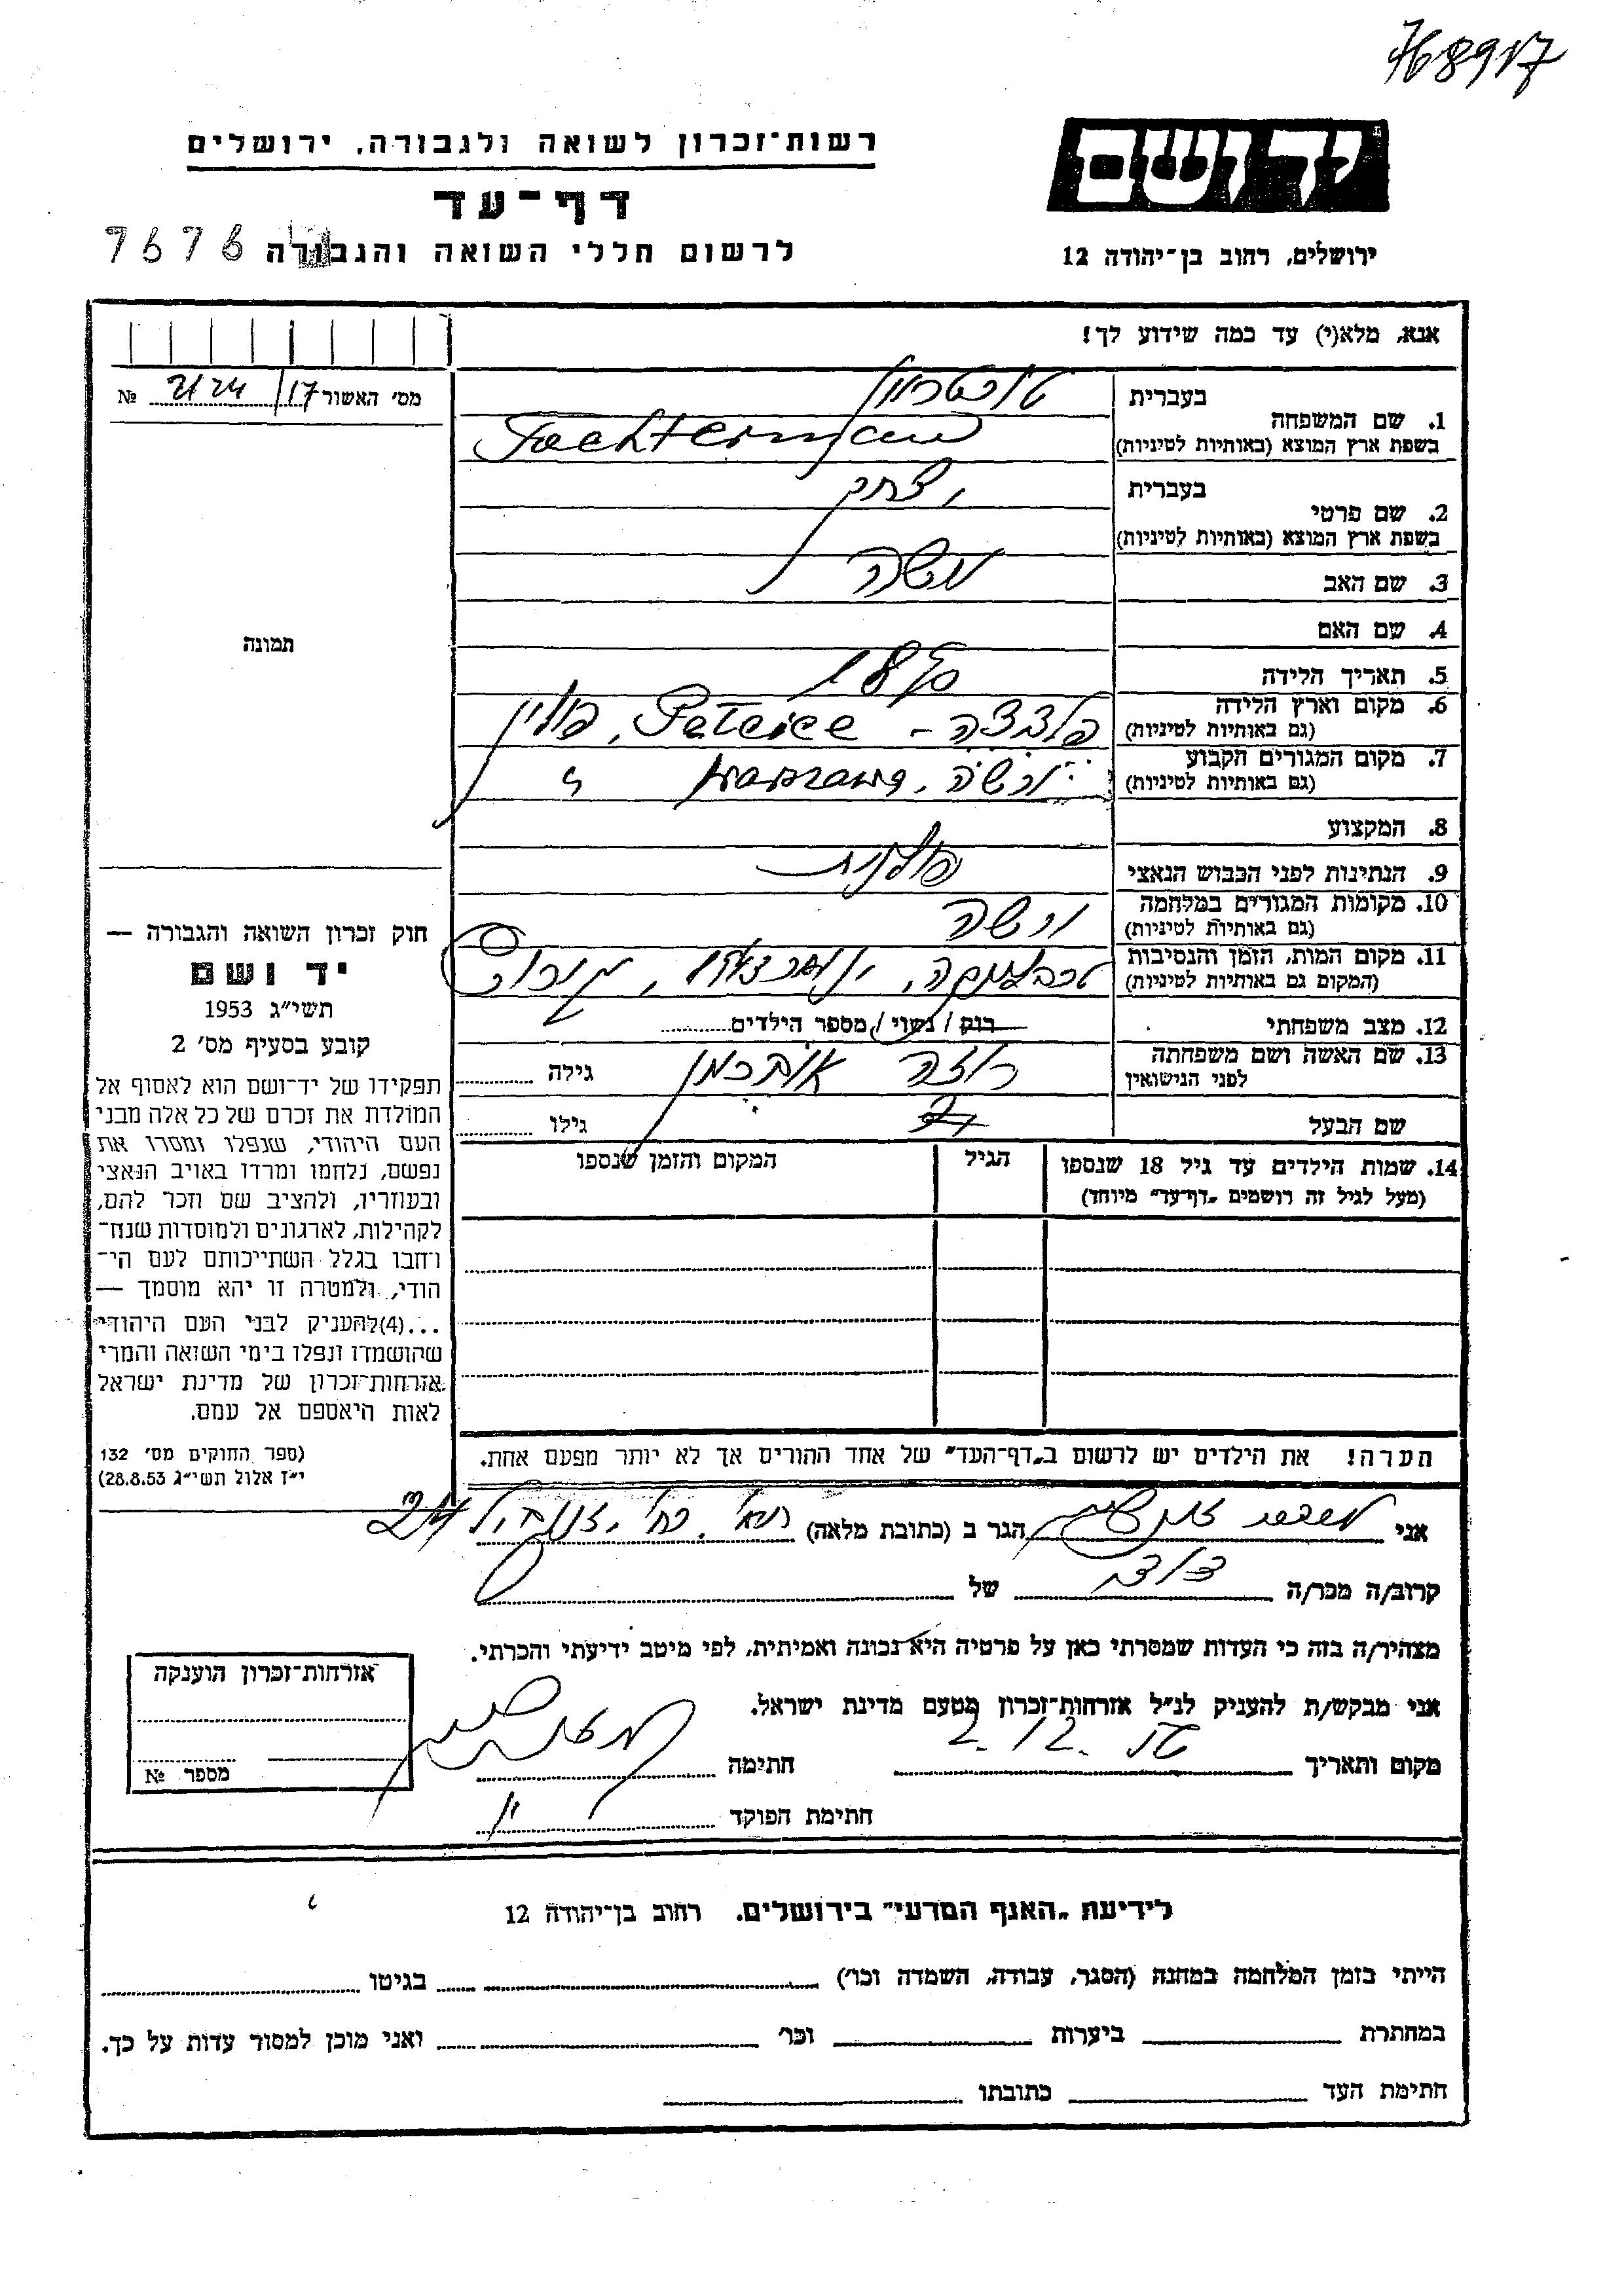 768917
רשות־זכרון לשואה ולגבורה, ירושלים
יד ושם
דף־עד
לרשום חללי השואה והגבורה
7676
ירושלים, רחוב בן־יהודה 12
אנא, מלא(י) עד כמה שידוע לך!
מס׳ האשור 17/2124 №
1. שם המשפחה
בעברית
בשפת ארץ המוצא (באותיות לטיניות)
2. שם פרטי
בעברית יצחק
בשפת ארץ המוצא (באותיות לטיניות)
3. שם האב משה
4. שם האם
תמונה
5. תאריך הלידה
6. מקום וארץ הלידה פולין
(גם באותיות לטיניות)
7. מקום המגורים הקבוע ורשה, Warszawa "
(גם באותיות לטיניות)
8. המקצוע
9. הנתינות לפני הכבוש הנאצי פולנית
10. מקומות המגורים במלחמה ורשה
(גם באותיות לטיניות)
11. מקום המות, הזמן והנסיבות טרבלינקה,
(המקום גם באותיות לטיניות)
12. מצב משפחתי רווק / נשוי / מספר הילדים
13. שם האשה ושם משפחתה רוזה גילה
לפני הנישואין
שם הבעל גילו
14. שמות הילדים עד גיל 18 שנספו הגיל המקום והזמן שנספו
(מעל לגיל זה רושמים „דף־עד״ מיוחד)
הערה! את הילדים יש לרשום ב„דף־העד״ של אחד ההורים אך לא יותר מפעם אחת.
חוק זכרון השואה והגבורה —
יד ושם
תשי״ג 1953
קובע בסעיף מס׳ 2
תפקידו של יד־ושם הוא לאסוף אל
המולדת את זכרם של כל אלה מבני
העם היהודי, שנפלו ומסרו את
נפשם, נלחמו ומרדו באויב הנאצי
ובעוזריו, ולהציב שם וזכר להם,
לקהילות, לארגונים ולמוסדות שנח־
רחבו בגלל השתייכותם לעם הי־
הודי, ולמטרה זו יהא מוסמך —
...(4)להעניק לבני העם היהודי
שהושמדו ונפלו בימי השואה והמרי
אזרחות־זכרון של מדינת ישראל
לאות היאספם אל עמם.
(ספר החוקים מס׳ 132
י״ז אלול תשי״ג 28.8.53)
אני הגר ב (כתובת מלאה) 24
קרוב/ה מכר/ה של
מצהיר/ה בזה כי העדות שמסרתי כאן על פרטיה היא נכונה ואמיתית, לפי מיטב ידיעתי והכרתי.
אני מבקש/ת להעניק לנ״ל אזרחות־זכרון מטעם מדינת ישראל.
מקום ותאריך 2.12. חתימה
חתימת הפוקד
אזרחות־זכרון הוענקה
מספר №
לידיעת „האגף המדעי״ בירושלים. רחוב בן־יהודה 12
הייתי בזמן המלחמה במחנה (הסגר, עבודה, השמדה וכו׳) בגיטו
במחתרת ביערות וכו׳ ואני מוכן למסור עדות על כך.
חתימת העד כתובתו